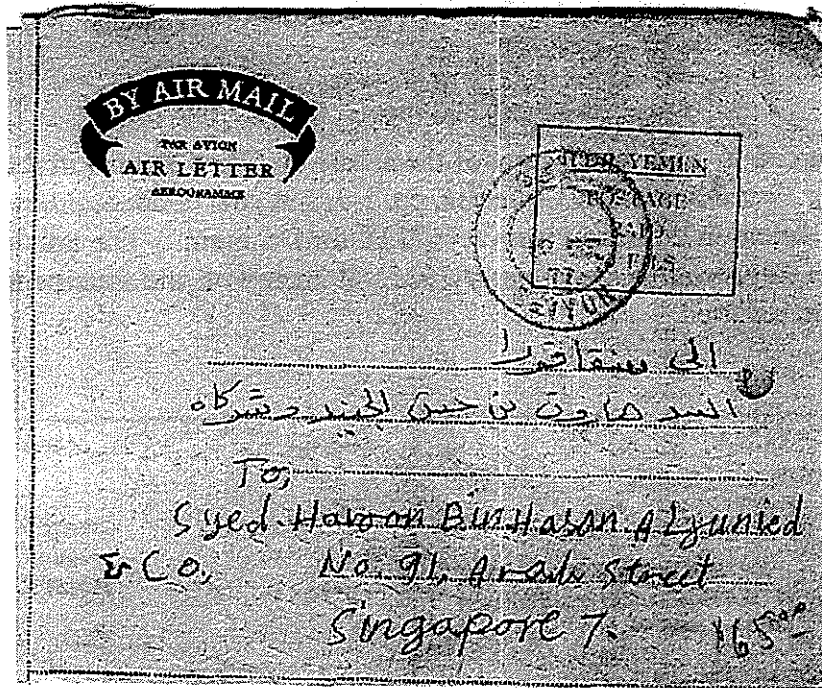 BY AIR MAIL
PAR AVION
AIR LETTER
AEROGRAMME
YEMEN
POSTAGE
PAID
FILS
77
SEIYUN
الى سنقافورا
السد هارون بن حسن الجنيد وشركاه
To,
Syed Haroon Bin Hasan Aljunied
& Co, No. 91, Arab Street
Singapore 7.